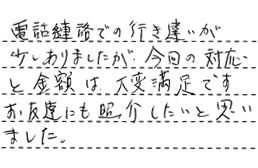 電話連絡での行き違いが
少しありましたが、今回の対応
と金額は大変満足です
お友達にも紹介したいと思い
ました。